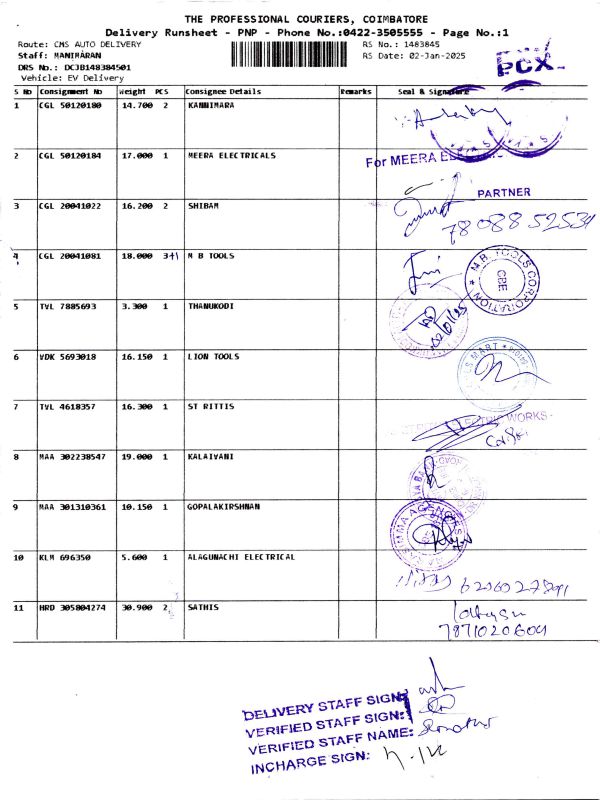 THE PROFESSIONAL COURIERS, COIMBATORE
Delivery Runsheet - PNP - Phone No.:0422-3505555 - Page No.:1
Route: CMS AUTO DELIVERY RS No.: 1483845
Staff: MANIMARAN RS Date: 02-Jan-2025
DRS No.: DCJB148384501
Vehicle: EV Delivery
PCX
S No Consignment No Weight PCS Consignee Details Remarks Seal & Signature
1 CGL 50120180 14.700 2 KANNIMARA
2 CGL 50120184 17.000 1 MEERA ELECTRICALS For MEERA
PARTNER
3 CGL 20041022 16.200 2 SHIBAM 7808852534
4 CGL 20041081 18.000 3+1 M B TOOLS M.B. TOOLS CORPORATION CBE
5 TVL 7885693 3.300 1 THANUKODI 02/01/25
6 VDK 5693018 16.150 1 LION TOOLS MART
7 TVL 4618357 16.300 1 ST RITTIS WORKS
8 MAA 302238547 19.000 1 KALAIVANI
9 MAA 301310361 10.150 1 GOPALAKIRSHNAN AGENCIES
10 KLM 696350 5.600 1 ALAGUNACHI ELECTRICAL
11 HRD 305804274 30.900 2 SATHIS
7871020604
DELIVERY STAFF SIGN:
VERIFIED STAFF SIGN:
VERIFIED STAFF NAME:
INCHARGE SIGN: